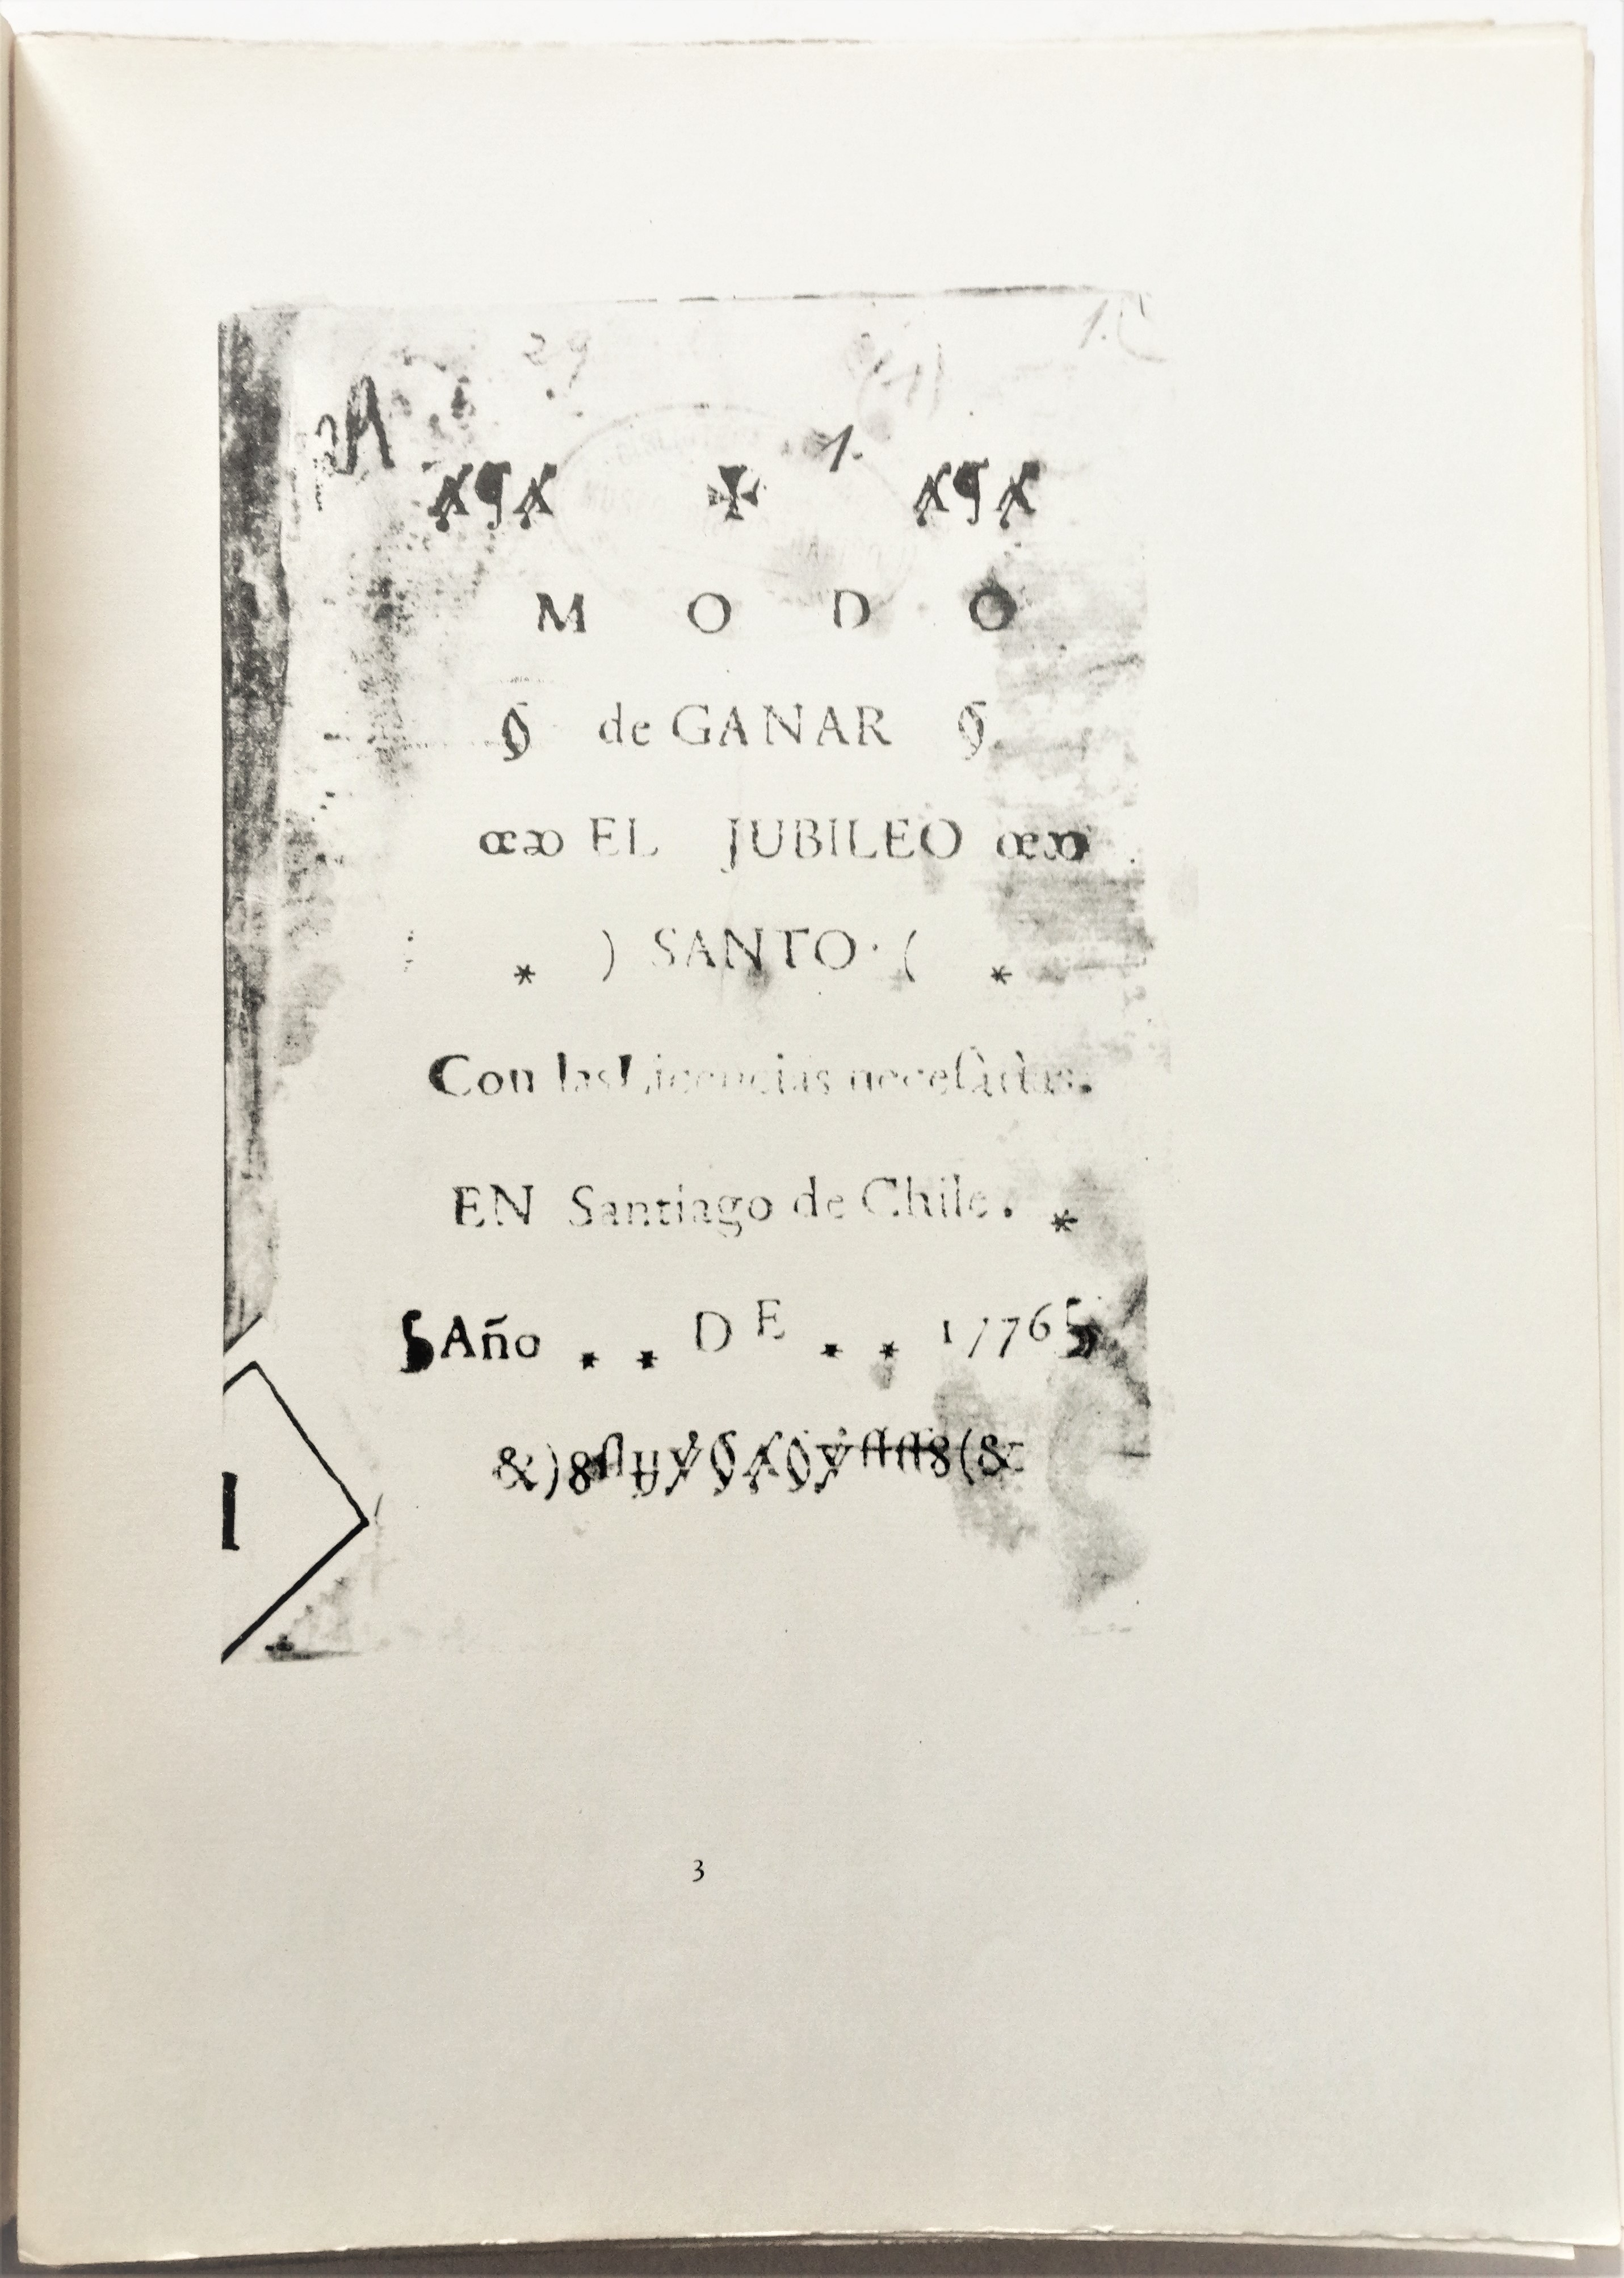 29
1.
M O D O
de GANAR
œ EL JUBILEO œ
* ) SANTO · ( *
Con las Licencias neceſarias.
EN Santiago de Chile. *
Año * * DE * * 1776
&)8 8(&
3